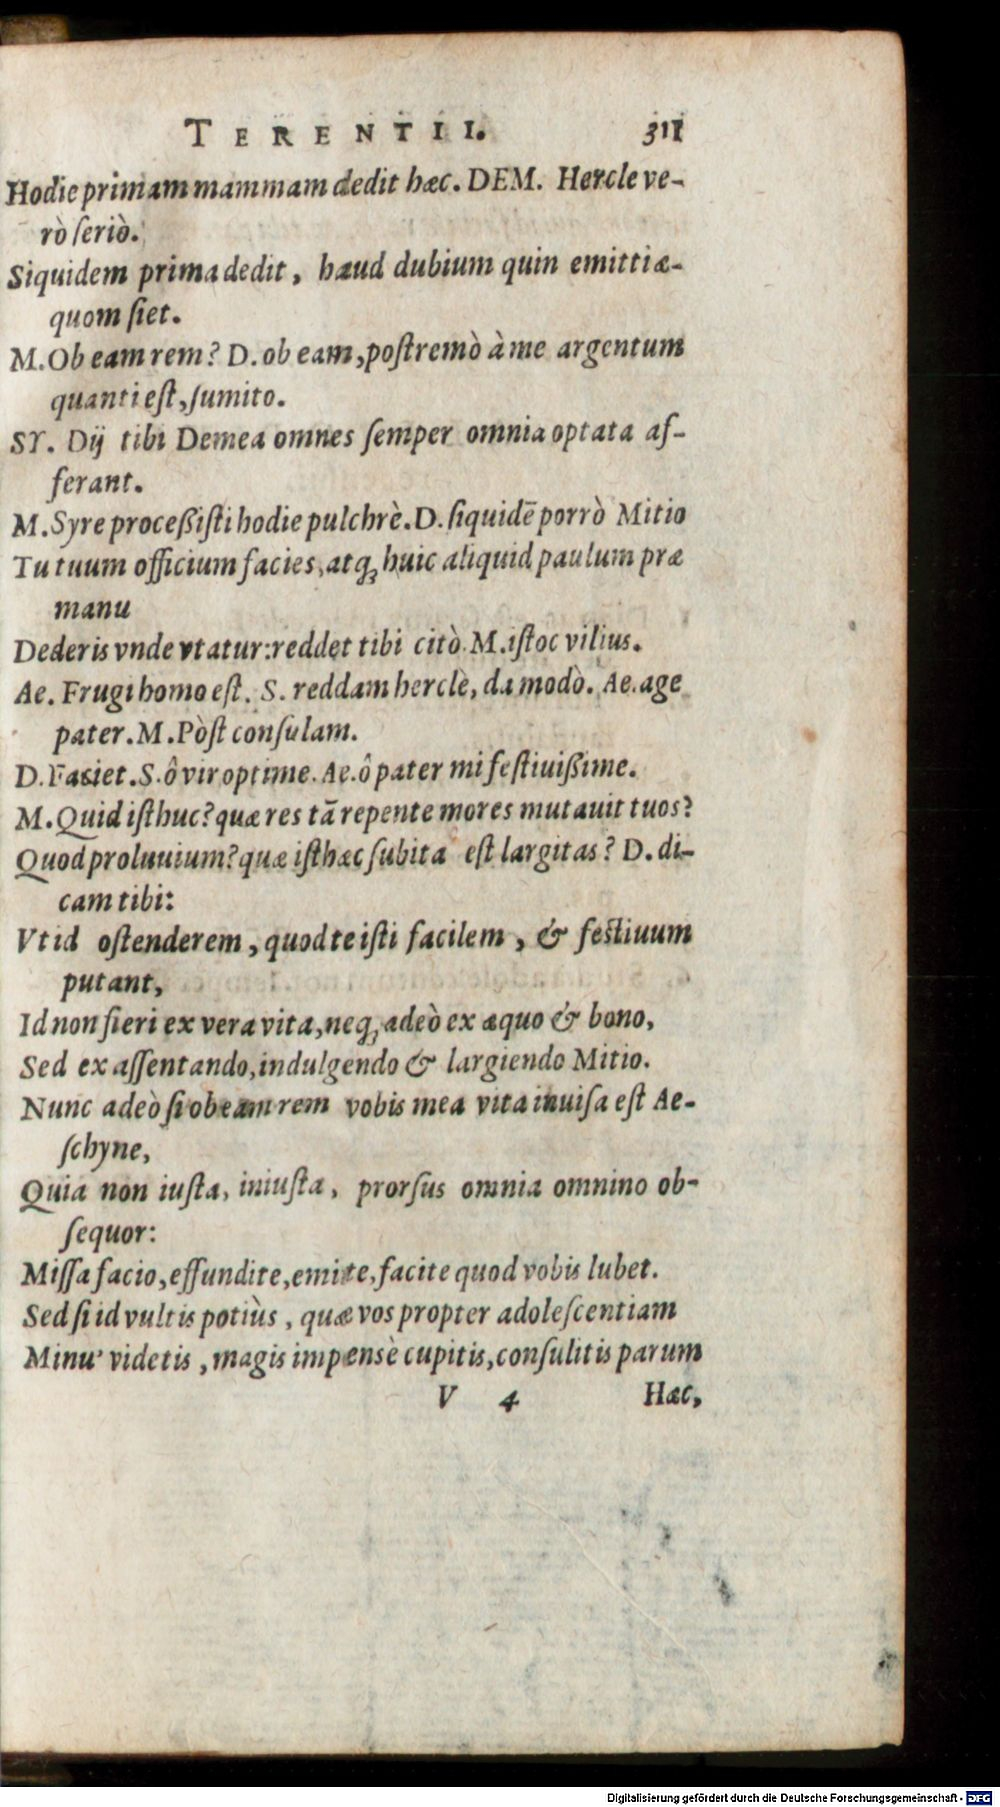 TERENTII. 311
Hodie primam mammam dedit hæc. DEM. Hercle ve-
rò ſeriò.
Siquidem prima dedit, haud dubium quin emitti æ-
quom ſiet.
M. Ob eam rem? D. ob eam, poſtremò à me argentum
quanti eſt, ſumito.
SY. Dij tibi Demea omnes ſemper omnia optata aſ-
ferant.
M. Syre proceßiſti hodie pulchrè. D. ſiquidē porrò Mitio
Tu tuum officium facies, atq; huic aliquid paulum præ
manu
Dederis vnde vtatur: reddet tibi citò. M. iſtoc vilius.
Ae. Frugi homo eſt. S. reddam herclè, da modò. Ae. age
pater. M. Pòſt conſulam.
D. Faciet. S. ô vir optime. Ae. ô pater mi feſtiuißime.
M. Quid iſthuc? quæ res tā repente mores mutauit tuos?
Quod proluuium? quæ iſthæc ſubita eſt largitas? D. di-
cam tibi:
Vt id oſtenderem, quod te iſti facilem, & feſtiuum
putant,
Id non fieri ex vera vita, neq; adeò ex æquo & bono,
Sed ex aſſentando, indulgendo & largiendo Mitio.
Nunc adeò ſi ob eam rem vobis mea vita inuiſa eſt Ae-
ſchyne,
Quia non iuſta, iniuſta, prorſus omnia omnino ob-
ſequor:
Miſſa facio, effundite, emite, facite quod vobis lubet.
Sed ſi id vultis potiùs, quæ vos propter adoleſcentiam
Minu' videtis, magis impensè cupitis, conſulitis parum
V 4 Hæc,
Digitalisierung gefördert durch die Deutsche Forschungsgemeinschaft - DFG